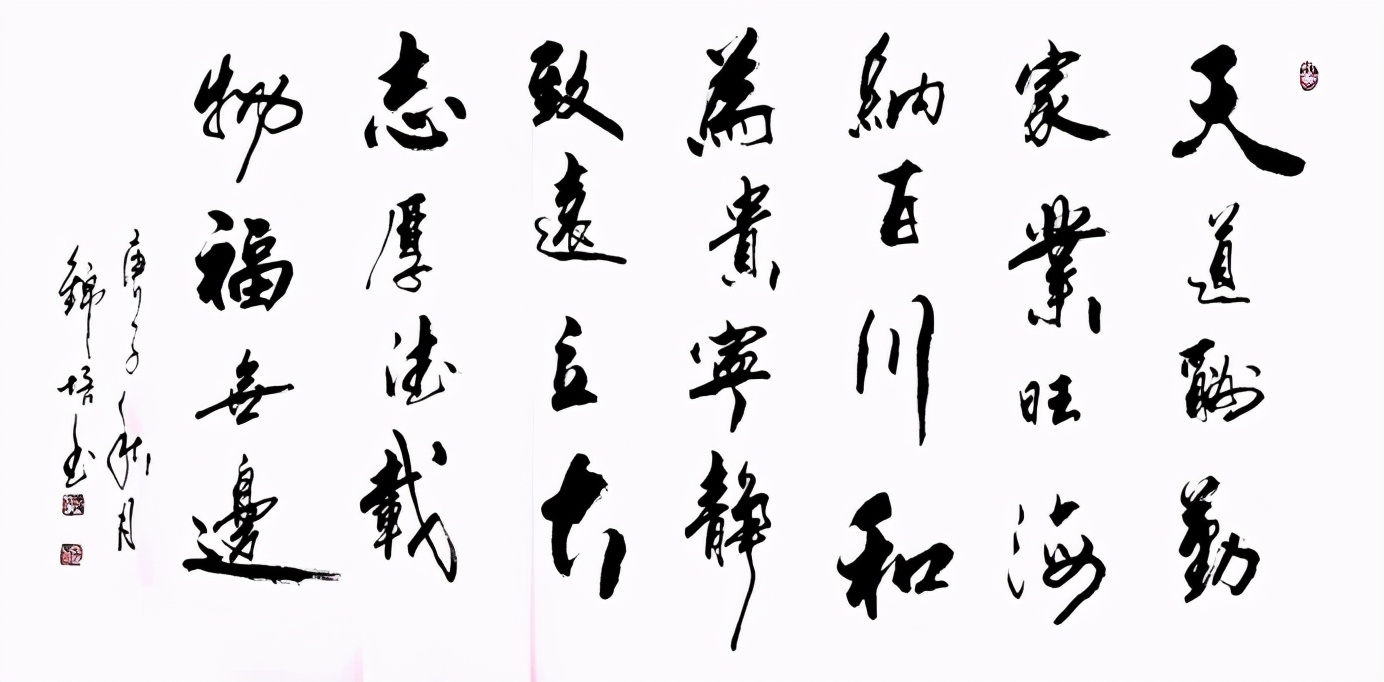 天道酬勤
家業旺海
納百川和
為貴寧靜
致遠立大
志厚德載
物福無邊
庚子秋月
錦培書